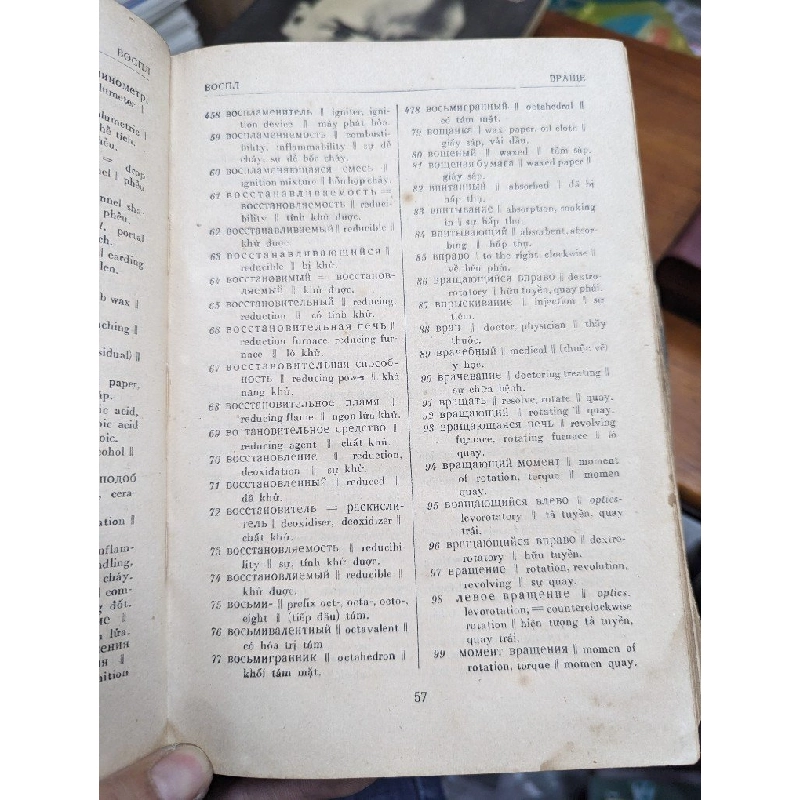 ВОСПЛ
ВРАЩЕ
458 воспламенитель ‖ igniter, igni-
tion device ‖ máy phát hỏa.
59 воспламеняемость ‖ combusti-
bility, inflammability ‖ sự dễ
cháy, sự dễ bốc cháy.
60 воспламеняющаяся смесь ‖
ignition mixture ‖ hỗn hợp cháy.
61 восстанавливаемость =
восстановляемость ‖ reduci-
bility ‖ tính khử được.
62 восстанавливаемый ‖ reducible ‖
khử được.
63 восстанавливающийся ‖
reducible ‖ bị khử.
64 восстановимый = восстанов-
ляемый ‖ khử được.
65 восстановительный ‖ reducing,
reduction ‖ có tính khử.
66 восстановительная печь ‖
reduction furnace reducing fur-
nace ‖ lò khử.
67 восстановительная способ-
ность ‖ reducing power ‖ khả
năng khử.
68 восстановительное пламя ‖
reducing flame ‖ ngọn lửa khử.
69 во тановительное средство ‖
reducing agent ‖ chất khử.
70 восстановление ‖ reduction,
deoxidation ‖ sự khử.
71 восстановленный ‖ reduced ‖
đã khử.
72 восстановитель = раскисли-
тель ‖ deoxidiser, deoxidizer ‖
chất khử.
73 восстановляемость ‖ reducibi
lity ‖ sự, tính khử được.
74 восстановляемый ‖ reducible ‖
khử được.
75 восьми- ‖ prefix oct-, octa-, octo-,
eight ‖ (tiếp đầu) tám.
76 восьмивалентный ‖ octavalent ‖
có hóa trị tám
77 восьмигранник ‖ octahedron ‖
khối tám mặt.
478 восьмигранный ‖ octahedral ‖
có tám mặt.
79 вощанка ‖ wax paper, oil cloth ‖
giấy sáp, vải dầu.
80 вощеный ‖ waxed ‖ tẩm sáp.
81 вощеная бумага ‖ waxed paper ‖
giấy sáp.
82 впитанный ‖ absorbed ‖ đã bị
hấp thụ.
83 впитывание ‖ absorption, soaking
in ‖ sự hấp thụ.
84 впитывающий ‖ absorbent, absor-
bing ‖ hấp thụ.
85 вправо ‖ to the right, clockwise ‖
về bên phải.
86 вращающийся вправо ‖ dextro-
rotatory ‖ hữu tuyền, quay phải.
87 впрыскивание ‖ injection ‖ sự
tiêm.
88 врач ‖ doctor, physician ‖ thầy
thuốc.
89 врачебный ‖ medical ‖ (thuộc về)
y học.
90 врачевание ‖ doctoring treating ‖
sự chữa bệnh.
91 вращать ‖ resolve, rotate ‖ quay.
92 вращающий ‖ rotating ‖ quay.
93 вращающаяся печь ‖ revolving
furnace, rotating furnace ‖ lò
quay.
94 вращающий момент ‖ moment
of rotation, torque ‖ momen
quay.
95 вращающийся влево ‖ optics-
levorotatory ‖ tả tuyền, quay
trái.
96 вращающийся вправо ‖ dextro-
rotatory ‖ hữu tuyền.
97 вращение ‖ rotation, revolution,
revolving ‖ sự quay.
98 левое вращение ‖ optics.
levorotation, = counterclockwise
rotation ‖ hiện tượng tả tuyền,
quay trái.
99 момент вращения ‖ momen of
rotation, torque ‖ momen quay.
57